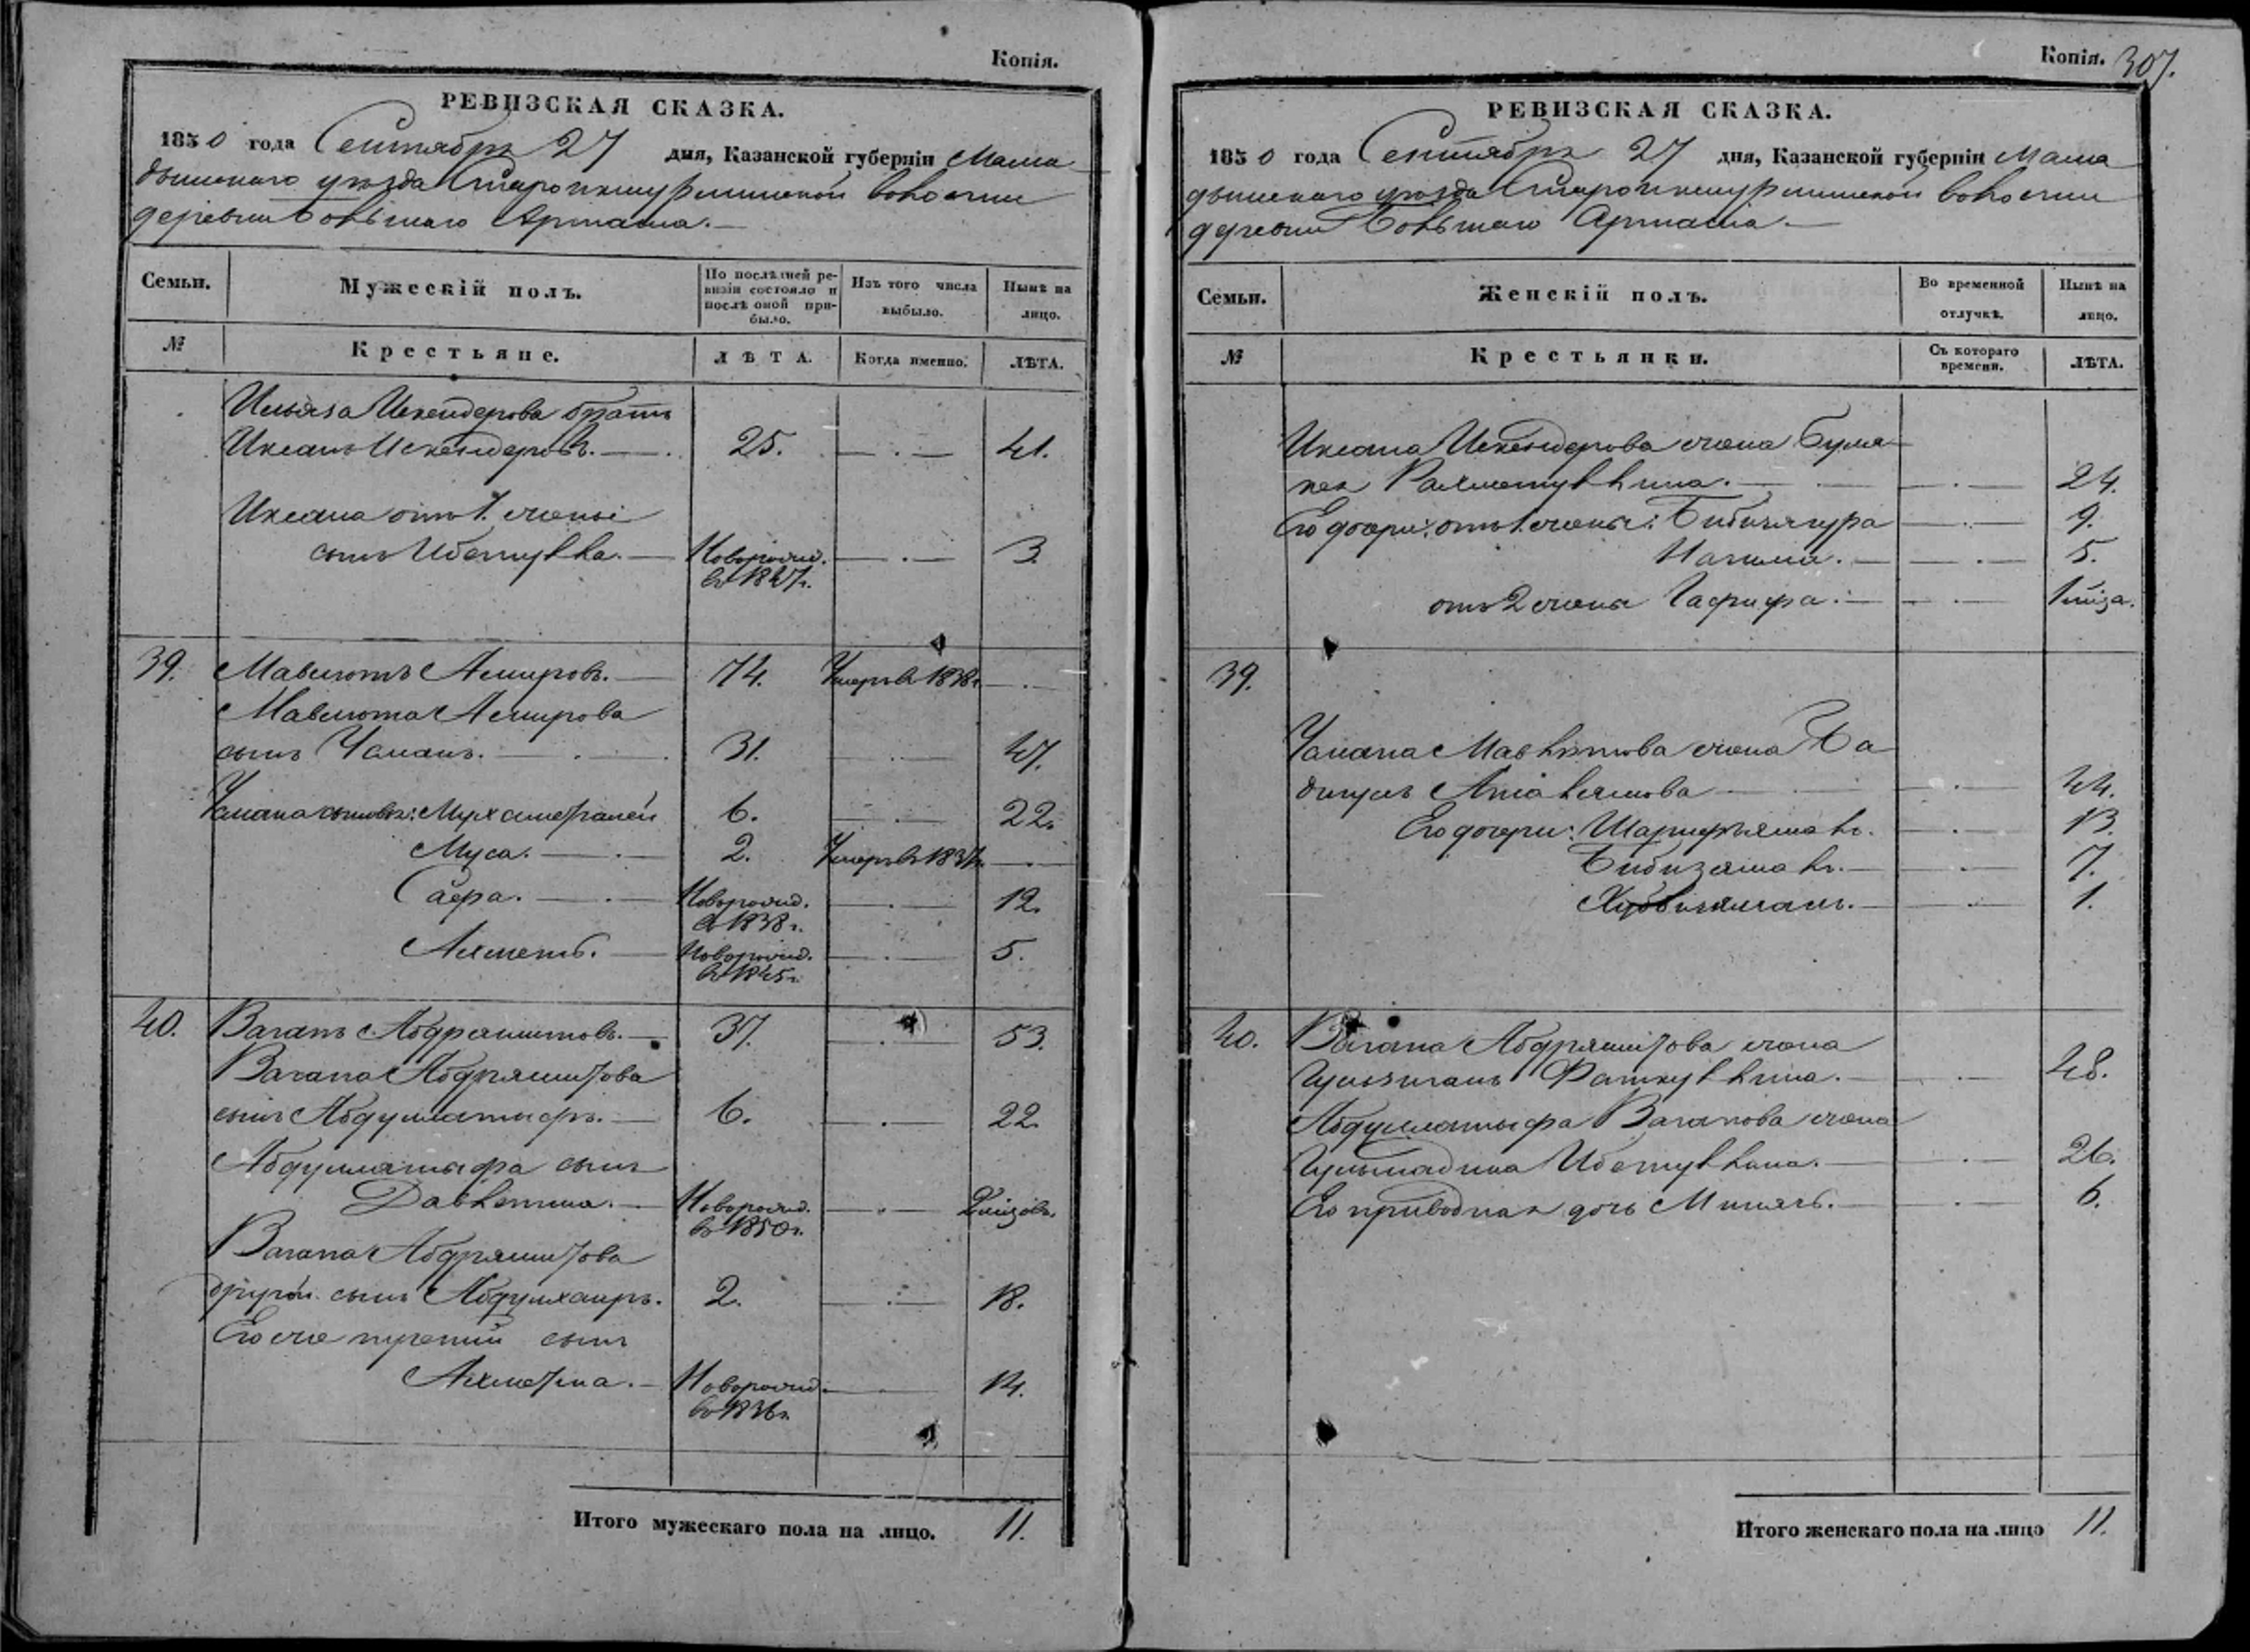 Копія.
РЕВИЗСКАЯ СКАЗКА.
1850 года Сентября 27 дня, Казанской губерніи Мама
дышскаго уѣзда Староикшурминской волости
деревни Большаго Арташа.
Семьи.
Мужескій полъ.
По послѣдней ре-
визіи состояло и
послѣ оной при-
было.
Изъ того числа
выбыло.
Нынѣ на
лицо.
№
Крестьяне.
ЛѢТА.
Когда именно.
ЛѢТА.
Ильяза Искендерова братъ
Иксанъ Искендеровъ. 25. 41.
Иксана отъ 1. жены
сынъ Ибетулла. Новорожд. 3.
въ 1847 г.
39. Мавлютъ Амировъ. 74. Умеръ въ 1838 г.
Мавлюта Амирова
сынъ Чаманъ. 31. 47.
Чамана сыновья: Мухаметгалей 6. 22.
Муса. 2. Умеръ въ 1837 г.
Сафа. Новорожд. 12.
въ 1838 г.
Ахметъ. Новорожд. 5.
въ 1845 г.
40. Вагапъ Абдряшитовъ. 37. 53.
Вагапа Абдряшитова
сынъ Абдуллатыфъ. 6. 22.
Абдуллатыфа сынъ
Давлетша. Новорожд. 2 мѣсяц.
въ 1850 г.
Вагапа Абдряшитова
другой сынъ Абдулхаиръ. 2. 18.
Его же третій сынъ
Ахметша. Новорожд. 14.
въ 1836 г.
Итого мужескаго пола на лицо. 11.
Копія. 307.
РЕВИЗСКАЯ СКАЗКА.
1850 года Сентября 27 дня, Казанской губерніи Мама
дышскаго уѣзда Староикшурминской волости
деревни Большаго Арташа.
Семьи.
Женскій полъ.
Во временной
отлучкѣ.
Нынѣ на
лицо.
№
Крестьянки.
Съ котораго
времени.
ЛѢТА.
Иксана Искендерова жена
Рахметуллина. 24.
Его дочери: отъ 1. жены: Бибинянура 9.
Нагима. 5.
отъ 2 жены Гафифа.
39.
Чамана Мавлютова жена Ба
44.
Его дочери: Шарифъямалъ. 13.
Бибизямалъ. 7.
1.
40. Вагапа Абдряшитова жена
Фаткуллина. 48.
Абдуллатыфа Вагапова жена
Ибетуллина. 26.
Его приводная дочь 6.
Итого женскаго пола на лицо 11.